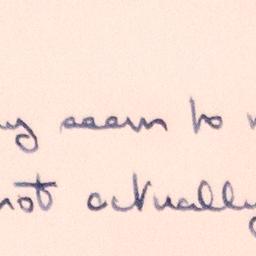 seem to
not actually